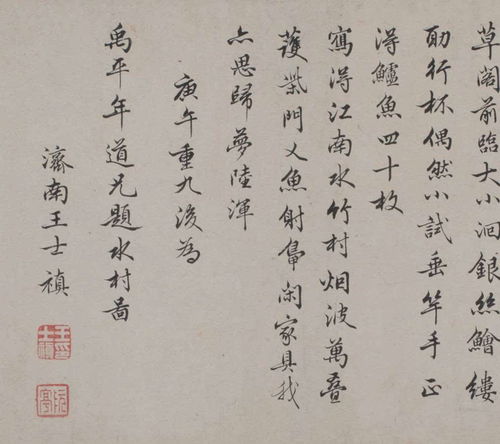 草閣前臨大小洄銀絲鱠縷
助行杯偶然小試垂竿手正
得鱸魚四十枚
寫得江南水竹村烟波萬疊
護柴門叉魚射鳧閑家具我
亦思歸夢陸渾
庚午重九後為
禹平年道兄題水村圖
濟南王士禛
王士禛印
阮亭